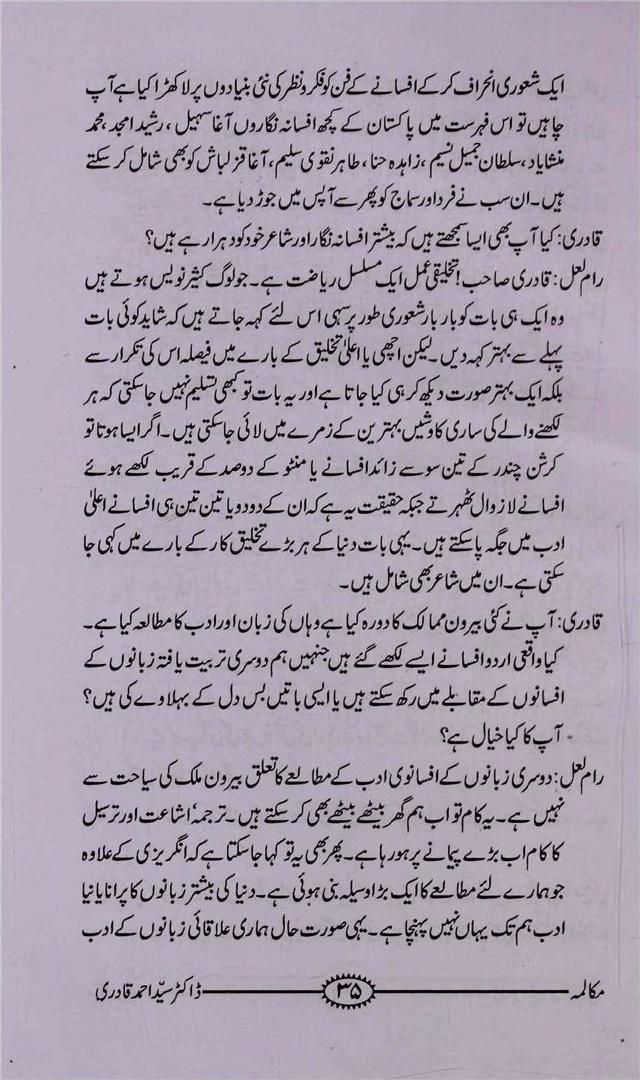 ایک شعوری انحراف کر کے افسانے کے فن کو فکر و نظر کی نئی بنیادوں پر لا کھڑا کیا ہے آپ
چاہیں تو اس فہرست میں پاکستان کے کچھ افسانہ نگاروں آغا سہیل، رشید امجد، محمد
منشا یاد، سلطان جمیل نسیم، زاہدہ حنا، طاہر نقوی سلیم، آغا قزلباش کو بھی شامل کر سکتے
ہیں۔ ان سب نے فرد اور سماج کو پھر سے آپس میں جوڑ دیا ہے۔
قادری: کیا آپ بھی ایسا سمجھتے ہیں کہ بیشتر افسانہ نگار اور شاعر خود کو دہرا رہے ہیں؟
رام لعل: قادری صاحب! تخلیقی عمل ایک مسلسل ریاضت ہے۔ جو لوگ کثیر نویس ہوتے ہیں
وہ ایک ہی بات کو بار بار شعوری طور پر سہی اس لئے کہہ جاتے ہیں کہ شاید کوئی بات
پہلے سے بہتر کہہ دیں۔ لیکن اچھی یا اعلیٰ تخلیق کے بارے میں فیصلہ اس کی تکرار سے
بلکہ ایک بہتر صورت دیکھ کر ہی کیا جاتا ہے اور یہ بات تو کبھی تسلیم نہیں جاسکتی کہ ہر
لکھنے والے کی ساری کاوشیں بہترین کے زمرے میں لائی جاسکتی ہیں۔ اگر ایسا ہوتا تو
کرشن چندر کے تین سو سے زائد افسانے یا منٹو کے دو صد کے قریب لکھے ہوئے
افسانے لازوال ٹھہرتے جبکہ حقیقت یہ ہے کہ ان کے دو دو یا تین تین ہی افسانے اعلیٰ
ادب میں جگہ پا سکتے ہیں۔ یہی بات دنیا کے ہر بڑے تخلیق کار کے بارے میں کہی جا
سکتی ہے۔ ان میں شاعر بھی شامل ہیں۔
قادری: آپ نے کئی بیرون ممالک کا دورہ کیا ہے وہاں کی زبان اور ادب کا مطالعہ کیا ہے۔
کیا واقعی اردو افسانے ایسے لکھے گئے ہیں جنہیں ہم دوسری تربیت یافتہ زبانوں کے
افسانوں کے مقابلے میں رکھ سکتے ہیں یا ایسی باتیں بس دل کے بہلاوے کی ہیں؟
آپ کا کیا خیال ہے؟
رام لعل: دوسری زبانوں کے افسانوی ادب کے مطالعے کا تعلق بیرون ملک کی سیاحت سے
نہیں ہے۔ یہ کام تو اب ہم گھر بیٹھے بیٹھے بھی کر سکتے ہیں۔ ترجمہ‘ اشاعت اور ترسیل
کا کام اب بڑے پیمانے پر ہو رہا ہے۔ پھر بھی یہ تو کہا جا سکتا ہے کہ انگریزی کے علاوہ
جو ہمارے لئے مطالعے کا ایک بڑا وسیلہ بنی ہوئی ہے۔ دنیا کی بیشتر زبانوں کا پرانا یا نیا
ادب ہم تک یہاں نہیں پہنچا ہے۔ یہی صورت حال ہماری علاقائی زبانوں کے ادب
مکالمہ ۳۵ ڈاکٹر سیّد احمد قادری